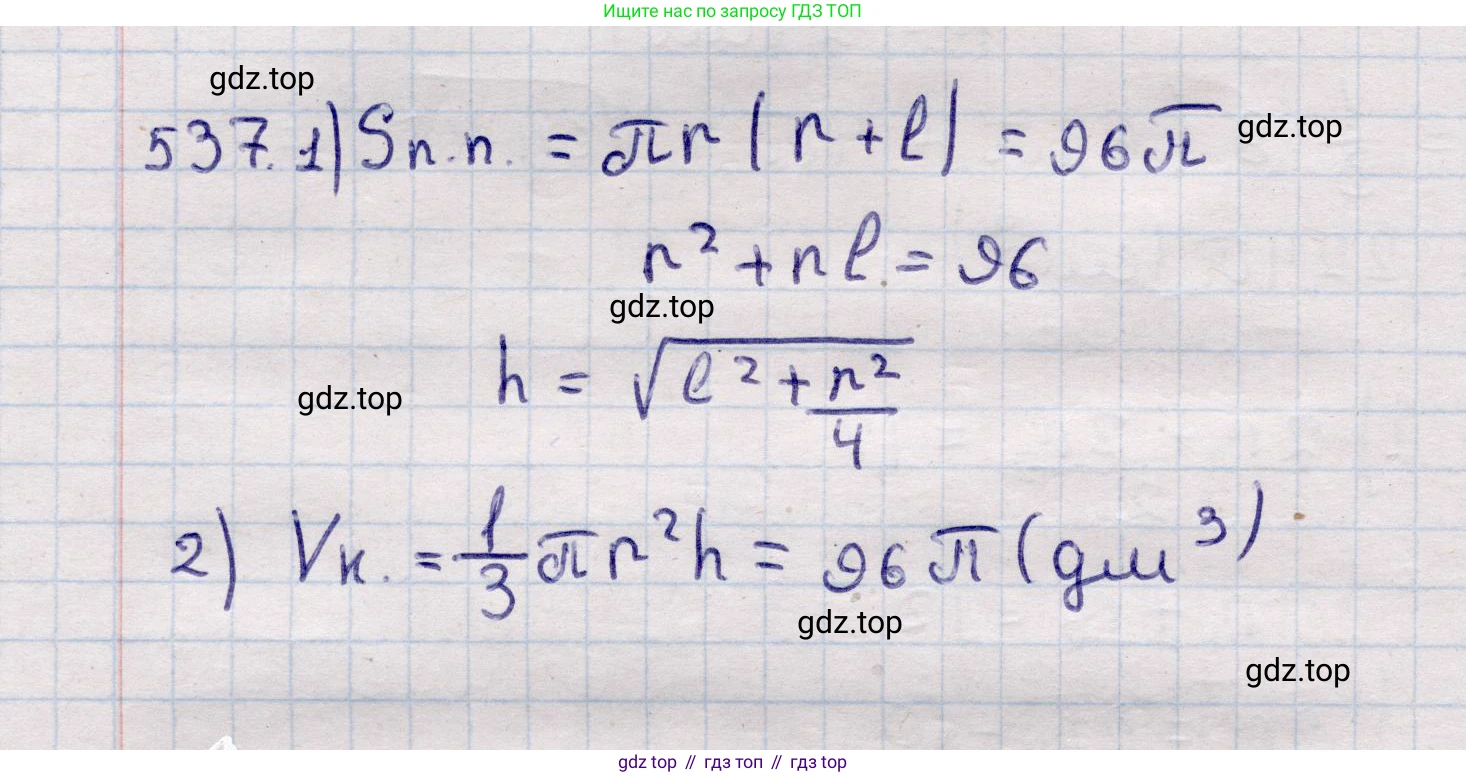 Ищите нас по запросу ГДЗ ТОП
gdz.top
537. 1) Sп.п. = πr(r + l) = 96π
gdz.top
r² + rl = 96
gdz.top
h = √(l² + r²/4)
gdz.top
2) Vк. = 1/3 πr²h = 96π (дм³)
gdz.top
gdz.top
gdz top // гдз топ // gdz top